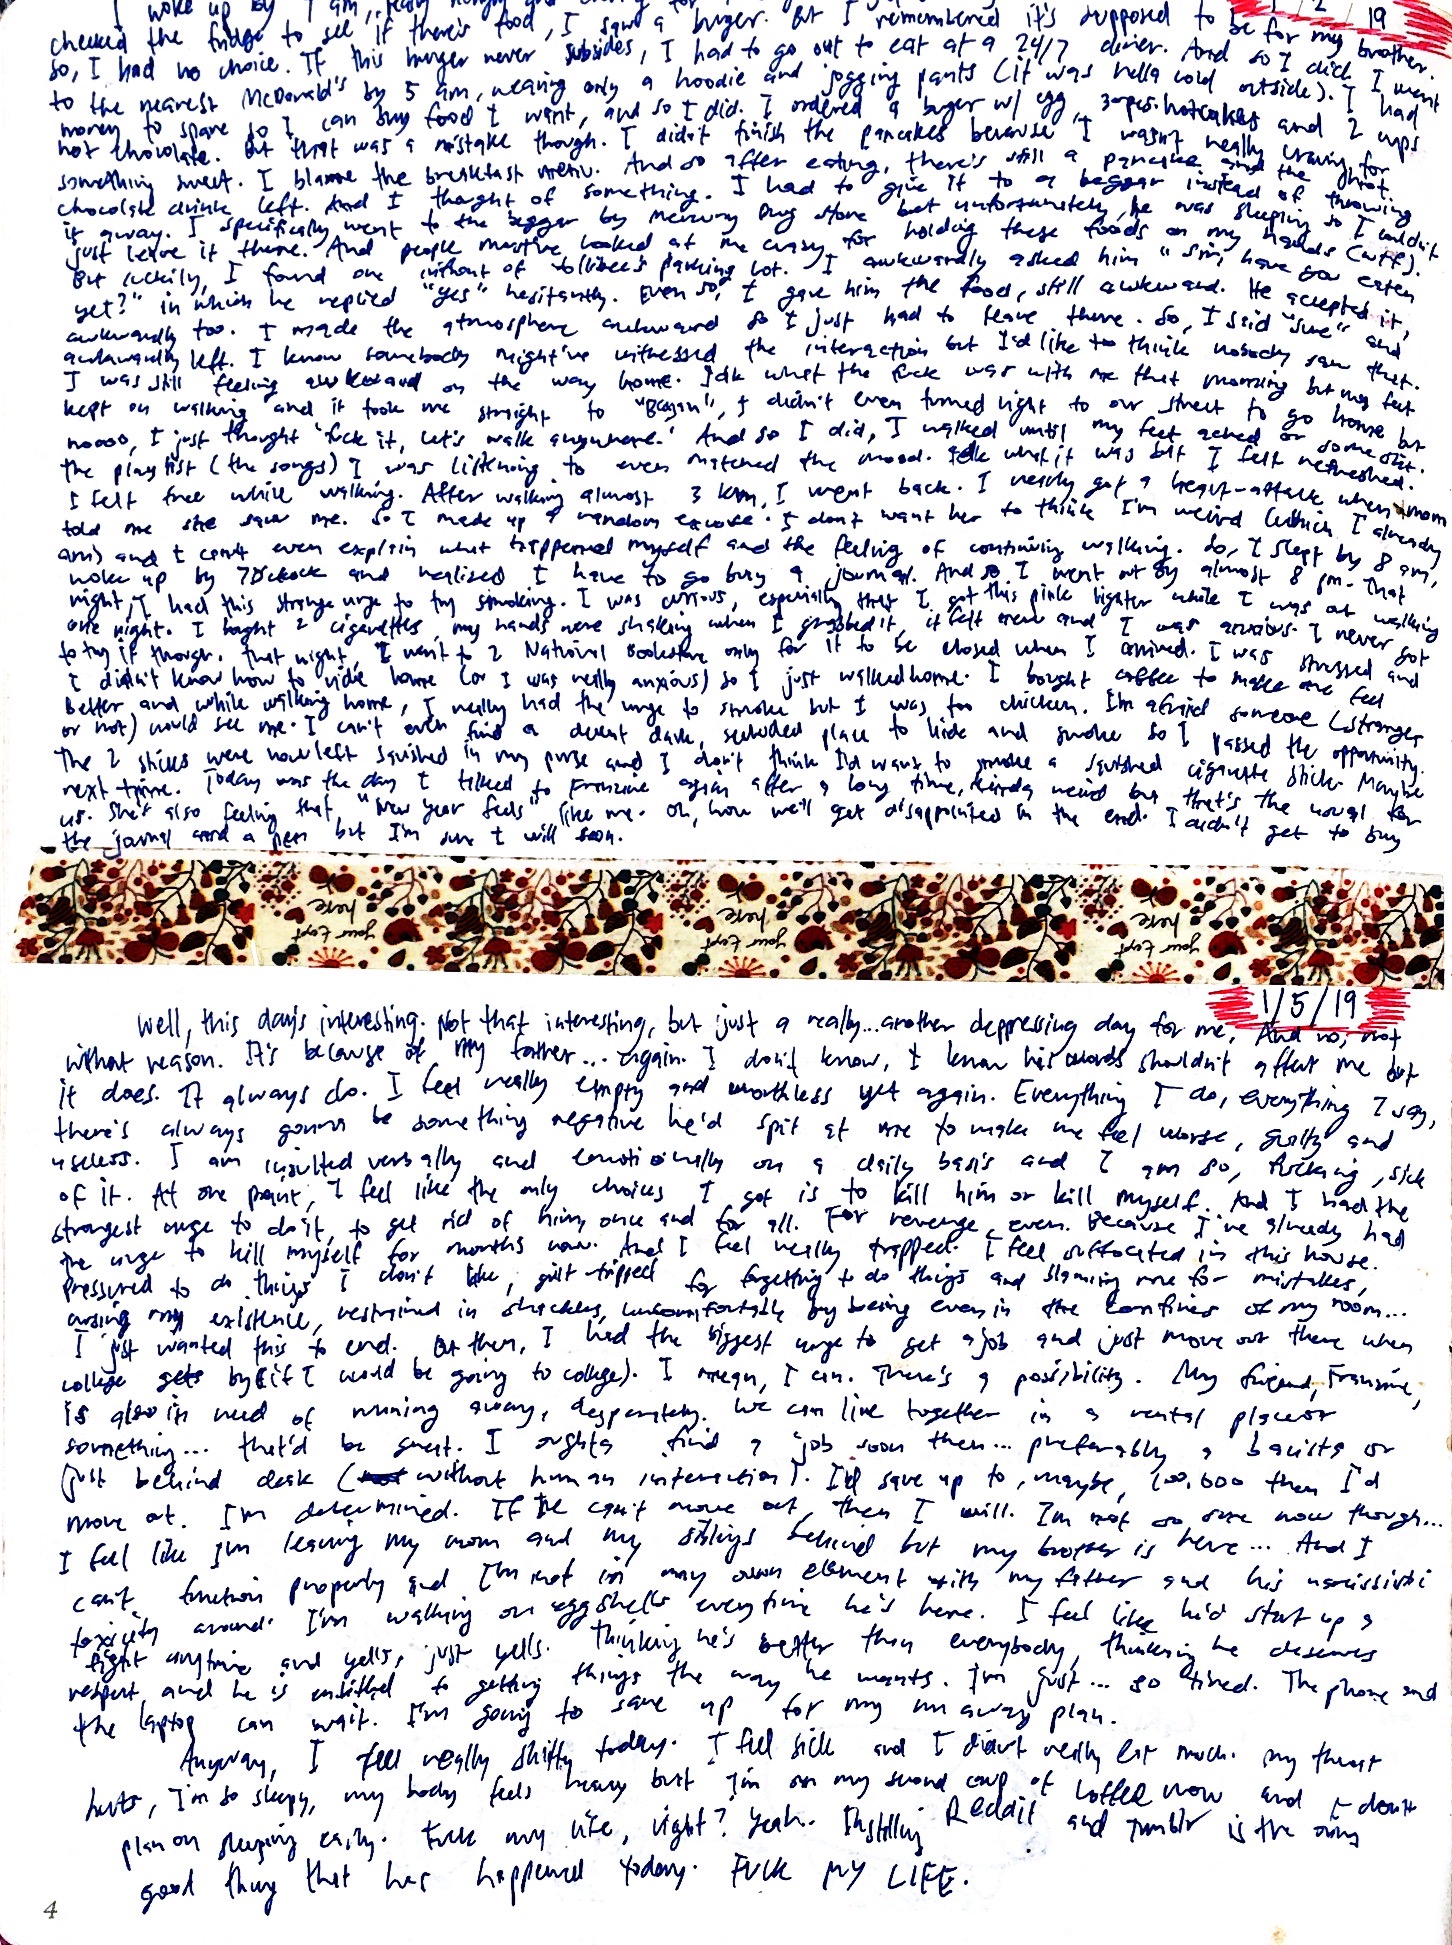 I woke up by 4 am, really hungry and craving for
1 / 2 / 19
checked the fridge to see if there's food, I saw a burger. But I remembered it's supposed to be for my brother.
so, I had no choice. If this hunger never subsides, I had to go out to eat at a 24/7 diner. And so I did. I went
to the nearest McDonald's by 5 am, wearing only a hoodie and jogging pants (it was hella cold outside). I had
money to spare so I can buy food I want, and so I did. I ordered a burger w/ egg, 3 pcs. hotcakes and 2 cups
hot chocolate. But that was a mistake though. I didn't finish the pancakes because I wasn't really craving for
something sweet. I blame the breakfast menu. And so after eating, there's still a pancake and the hot
chocolate drink left. And I thought of something. I had to give it to a beggar instead of throwing
it away. I specifically went to the beggar by Mercury Drug store but unfortunately, he was sleeping so I couldn't
just leave it there. And people must've looked at me crazy for holding these foods on my hands (wtf).
But luckily, I found one without of Jollibee's parking lot. I awkwardly asked him "Sir, have you eaten
yet?" in which he replied "yes" hesitantly. Even so, I gave him the food, still awkward. He accepted it,
awkwardly too. I made the atmosphere awkward so I just had to leave there. So, I said "sure" and
awkwardly left. I know somebody might've witnessed the interaction but I'd like to think nobody saw that.
I was still feeling awkward on the way home. Idk what the fuck was with me that morning but my feet
kept on walking and it took me straight to "Bayan", I didn't even turned right to our street to go home but
noooo, I just thought "fuck it, let's walk anywhere." And so I did, I walked until my feet ached or some shit.
The playlist (the songs) I was listening to even matched the mood. Idk what it was but I felt refreshed.
I felt free while walking. After walking almost 3 km, I went back. I nearly got a heart-attack when mom
told me she saw me. So I made up a random excuse. I don't want her to think I'm weird (which I already
am) and I can't even explain what happened myself and the feeling of continuing walking. So, I slept by 8 am,
woke up by 7 o'clock and realized I have to go buy a journal. And so I went out by almost 8 pm. That
night, I had this strange urge to try smoking. I was curious, especially that I got this pink lighter while I was out walking
one night. I bought 2 cigarettes, my hands were shaking when I grabbed it, it felt and I was anxious. I never got
to try it though. That night, I went to 2 National Bookstore only for it to be closed when I arrived. I was stressed and
I didn't know how to ride home (or I was really anxious) so I just walked home. I bought coffee to make me feel
better and while walking home, I really had the urge to smoke but I was too chicken. I'm afraid someone (stranger
or not) would see me. I can't even find a decent dark, secluded place to hide and smoke so I passed the opportunity.
The 2 sticks were now left squished in my purse and I don't think I'd want to smoke a squished cigarette stick. Maybe
next time. Today was the day I talked to Francine again after a long time, kinda weird but that's the usual for
us. She's also feeling that "New Year feels" like me. Oh, how we'll get disappointed in the end. I didn't get to buy
the journal and a pen but I'm sure I will soon.
your text here
your text here
your text here
1/5/19
Well, this day's interesting. Not that interesting, but just a really... another depressing day for me. And no, not
without reason. It's because of my father... again. I don't know, I know his words shouldn't affect me but
it does. It always do. I feel really empty and worthless yet again. Everything I do, everything I say,
there's always gonna be something negative he'd spit at me to make me feel worse, guilty and
useless. I am insulted verbally and emotionally on a daily basis and I am so, fucking, sick
of it. At one point, I feel like the only choices I got is to kill him or kill myself. And I had the
strongest urge to do it, to get rid of him, once and for all. For revenge, even. Because I've already had
the urge to kill myself for months now. And I feel really trapped. I feel suffocated in this house.
Pressured to do things I don't like, guilt-tripped for forgetting to do things and slaming me for mistakes,
cursing my existence, restrained in shackles, uncomfortable by being even in the confines of my room...
I just wanted this to end. But then, I had the biggest urge to get a job and just move out there when
college gets by (if I would be going to college). I mean, I can. There's a possibility. My friend, Francine,
is also in need of running away, desperately. We can live together in a rental place or
something... that'd be great. I oughta find a job soon then... preferably a barista or
just behind desk (without human interaction). I'd save up to, maybe, 100,000 then I'd
move out. I'm determined. If he can't move out, then I will. I'm not so sure now though...
I feel like I'm leaving my mom and my siblings behind but my brother is here... And I
can't function properly and I'm not in my own element with my father and his narcissistic
toxicity around. I'm walking on eggshells everytime he's here. I feel like he'd start up a
fight anytime and yells, just yells. Thinking he's better than everybody, thinking he deserves
respect and he is entitled to getting things the way he wants. I'm just... so tired. The phone and
the laptop can wait. I'm going to save up for my run away plan.
Anyway, I feel really shitty today. I feel sick and I didn't really eat much. My throat
hurts, I'm so sleepy, my body feels heavy but I'm on my second cup of coffee now and I don't
plan on sleeping early. Fuck my life, right? Yeah. Installing Reddit and Tumblr is the only
good thing that has happened today. FUCK MY LIFE.
4